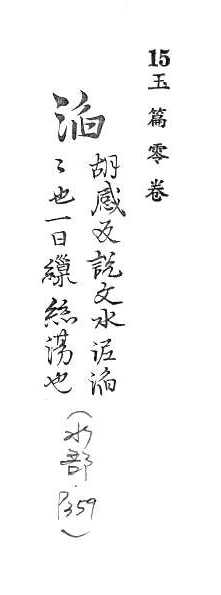 15玉篇零卷
淊
胡感反說文水泥淊
〻也一曰繅絲湯也
(水部 P359)